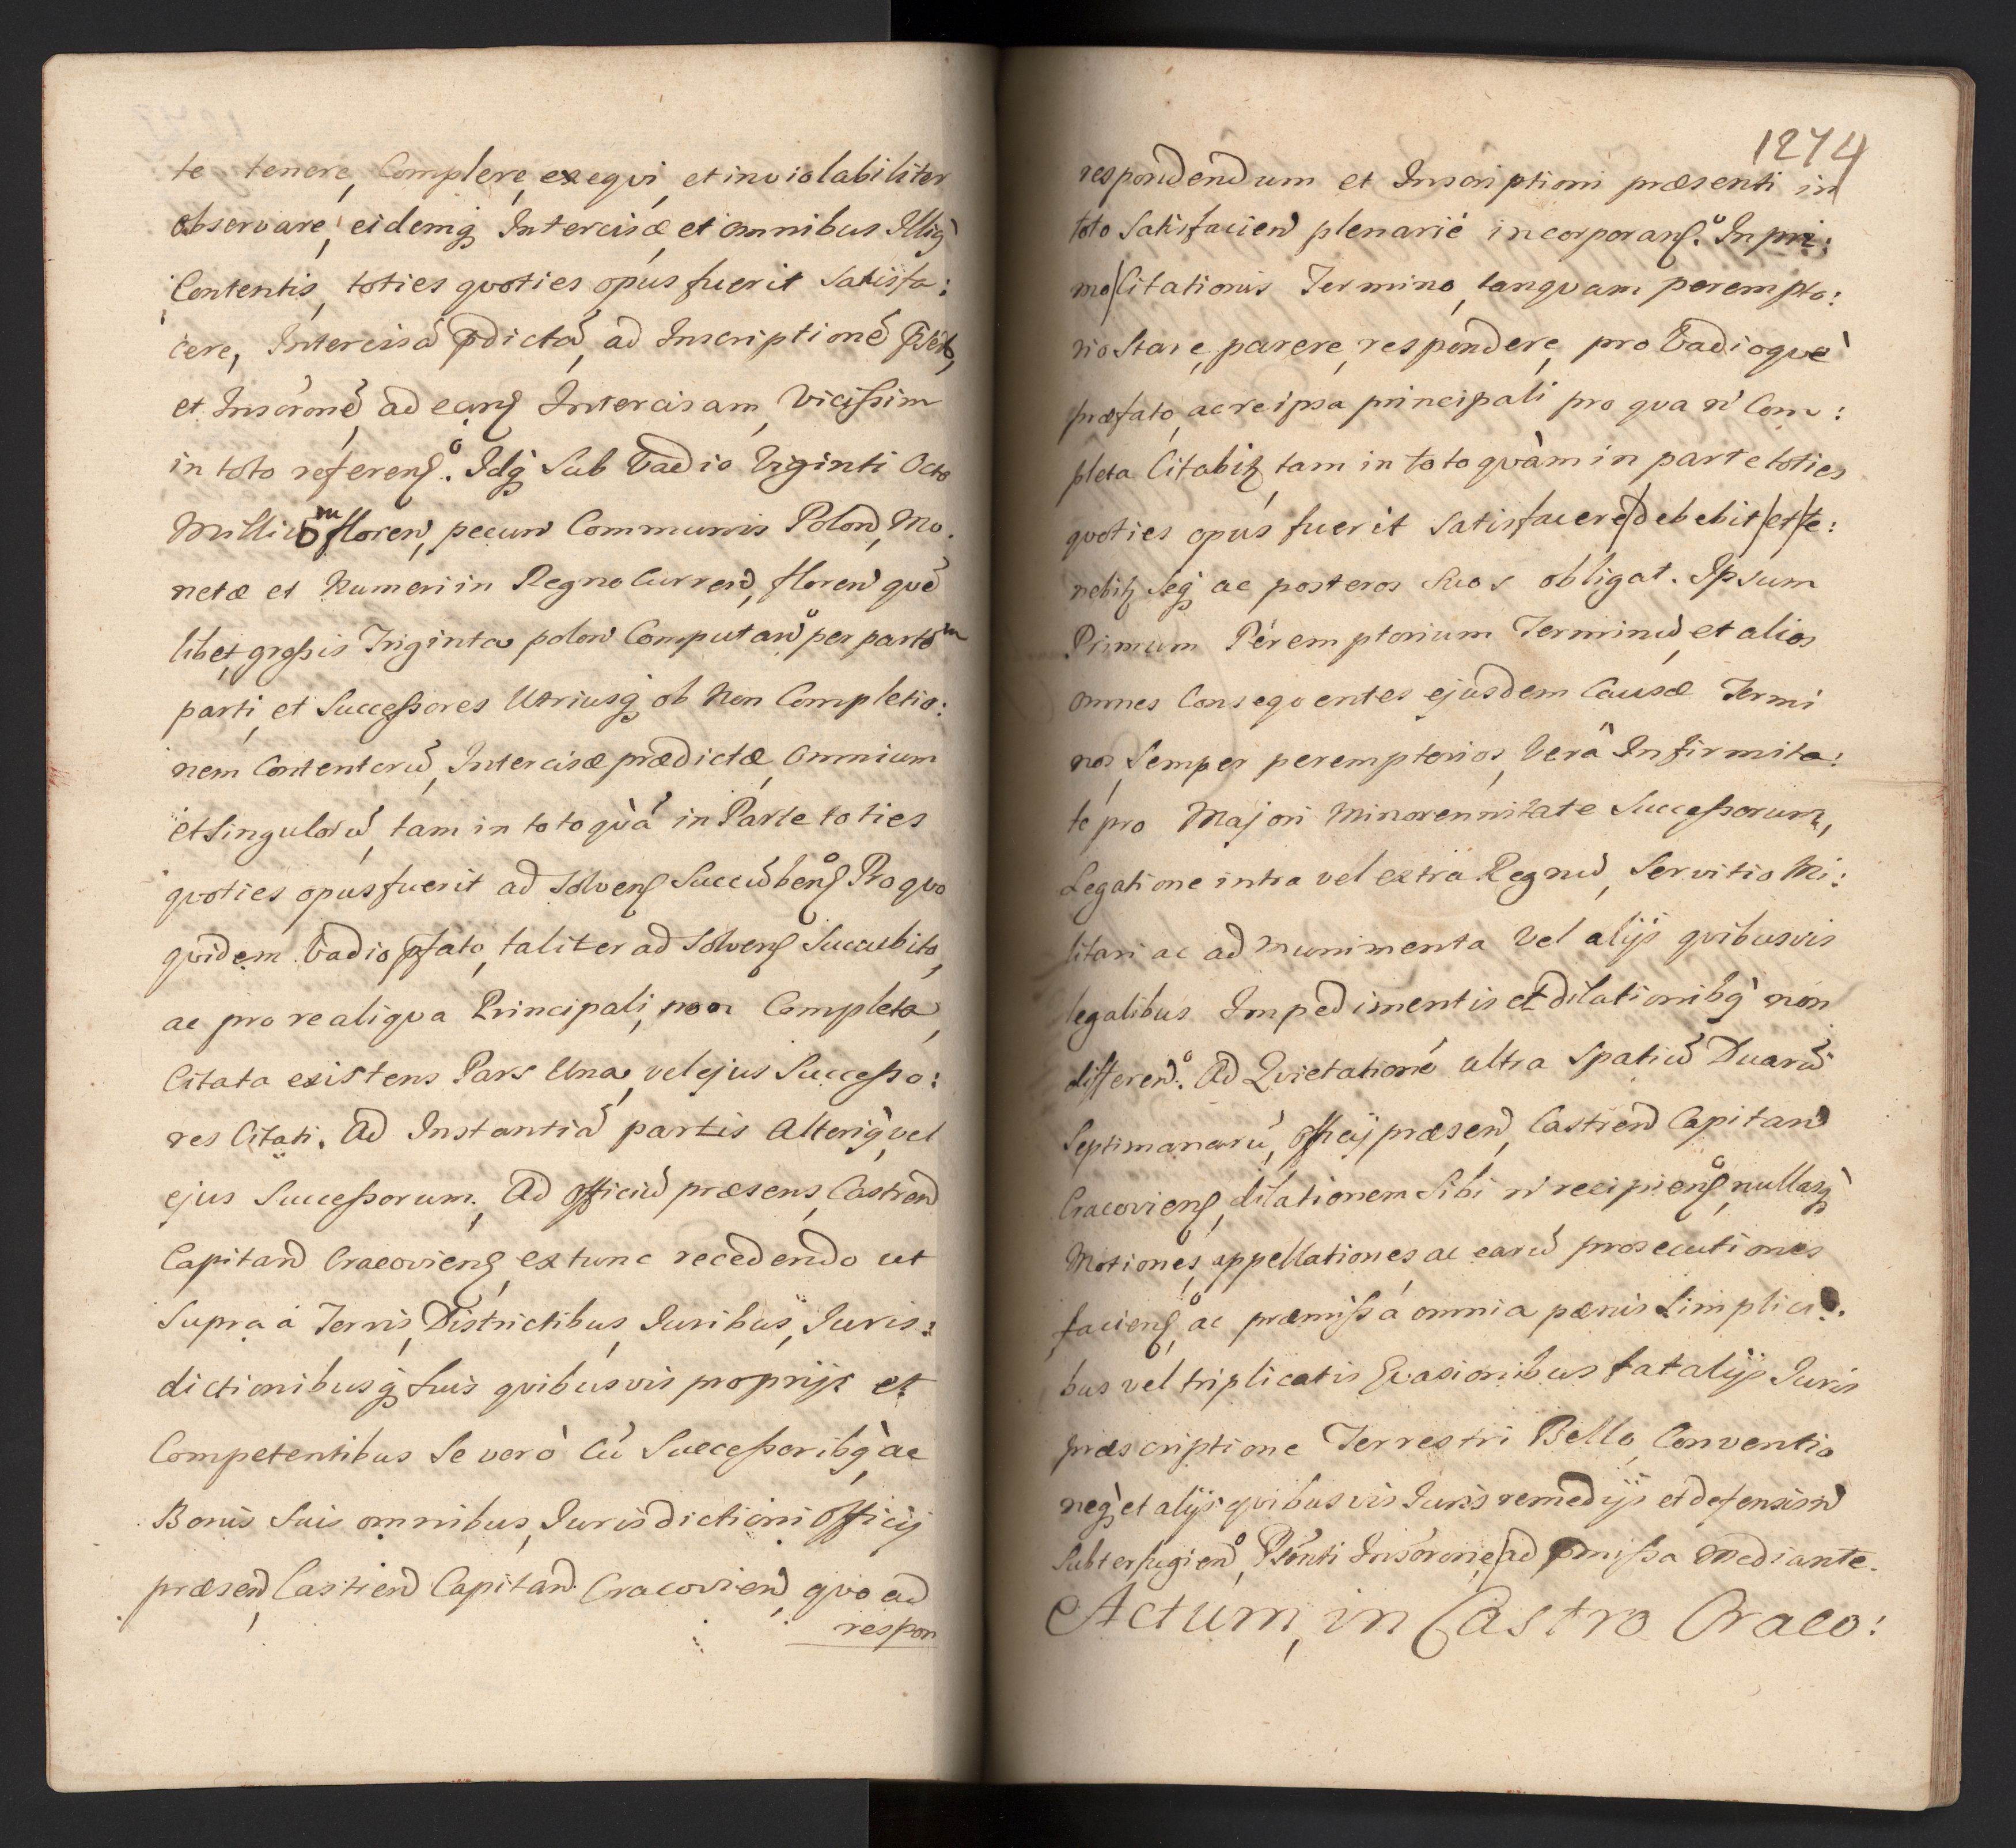 te tenere, Complere, exeqvi, et inviolabiliter
observare, eidemq, Intercisæ, et omnibus Illiq
Contentis, toties qvoties opus fuerit Satisfa:
cere, Intercisā pdictā, ad Inscriptionē
et Inscronē, ad eanq Intercisam, Vicissim
in toto referenꝭ. Idq Sub Vadio Viginti Octo
Milliū floren, pecun Communis Polond, Mo.
netæ et Numeri in Regno Currend, floren qvē
libet, grossis Triginta polon Computan per partē
parti, et Successores Utriusq, ob Non Completio:
nem Contentorū, Intercisæ prædictæ, omnium
et Singulorū, tam in toto qvā in Parte toties
qvoties opus fuerit ad solvenꝭ Succūbenꝭ Pro qvo
qvidem Vadio pfato, taliter ad Solvenꝭ Succubito,
ac pro re aliqva Principali, non Completa,
Citata existens Pars Una, vel ejus Successo:
res Citati. Ad Instantiā partis Alteriq, vel
ejus Successorum. Ad Officiū præsens, Castrend
Capitand Cracovienꝭ, extunc recedendo ut
Supra a Terris, Districtibus, Iuribus, Iuris:
dictionibusq Suis qvibusvis proprijs et
Competentibus Se verò Cū Successoribq ac
Bonis Suis omnibus, Iurisdictioni Officij
præsend Castrend Capitand Cracoviend, qvo ad
respon
1274
respondendum et Inscriptioni præsenti in
toto Satisfaciend plenarié incorporanꝭ. In pri:
mo Citationis Termino, tanqvam perempto:
rio Stare, parere, respondere, pro Vadioqve
præfato, ac re ipsa principali pro qva n Com:
pleta Citabit, tam in toto qvàm in parte toties
qvoties opus fuerit satisfacere debebit et te:
nebit, Seq ac posteros suos obligat. Ipsum
Primum Peremptorium Terminū, et alios
omnes Conseqventes ejusdem Causæ Termi
nos, Semper peremptorios, Verâ Infirmita:
te pro Majori Minorennitate Successorum,
Legatione intra vel extra Regnū, Servitio Mi:
litari ac ad munimenta Vel alijs qvibusvis
legalibus Impedimentis et dilationibq non
differend. Ad Qvietationē ultra Spatiū Duarū
Septimanarū, Officij præsend, Castrend Capitand
Cracovienꝭ, dilationem Sibi n recipienꝭ, nullasq
Motiones, appellationes ac earū prosecutiones
facienꝭ, ac præmissa omnia pænis Simplici
bus vel triplicatis Evasionibus fatalijs Iuris
præscriptione Terrestri Bello, Conventio
neq et alijs qvibusvis Iuris remedijs et defension
Subterfugiend, Psenti Inscrone, ad pmissa Mediante.
Actum, in Castro Craco: